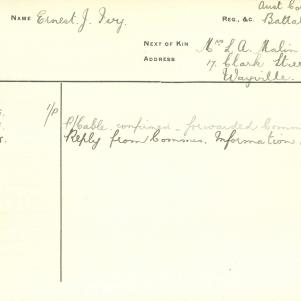 Aust Co
Name Ernest J. Ivy
Reg., &c. Battal
Next of Kin Mrs L. A. Malin
Address 17, Clark Stree
Wayville.
1/P
P/Cable confirmed - forwarded Comm
Reply from Commrs. Information